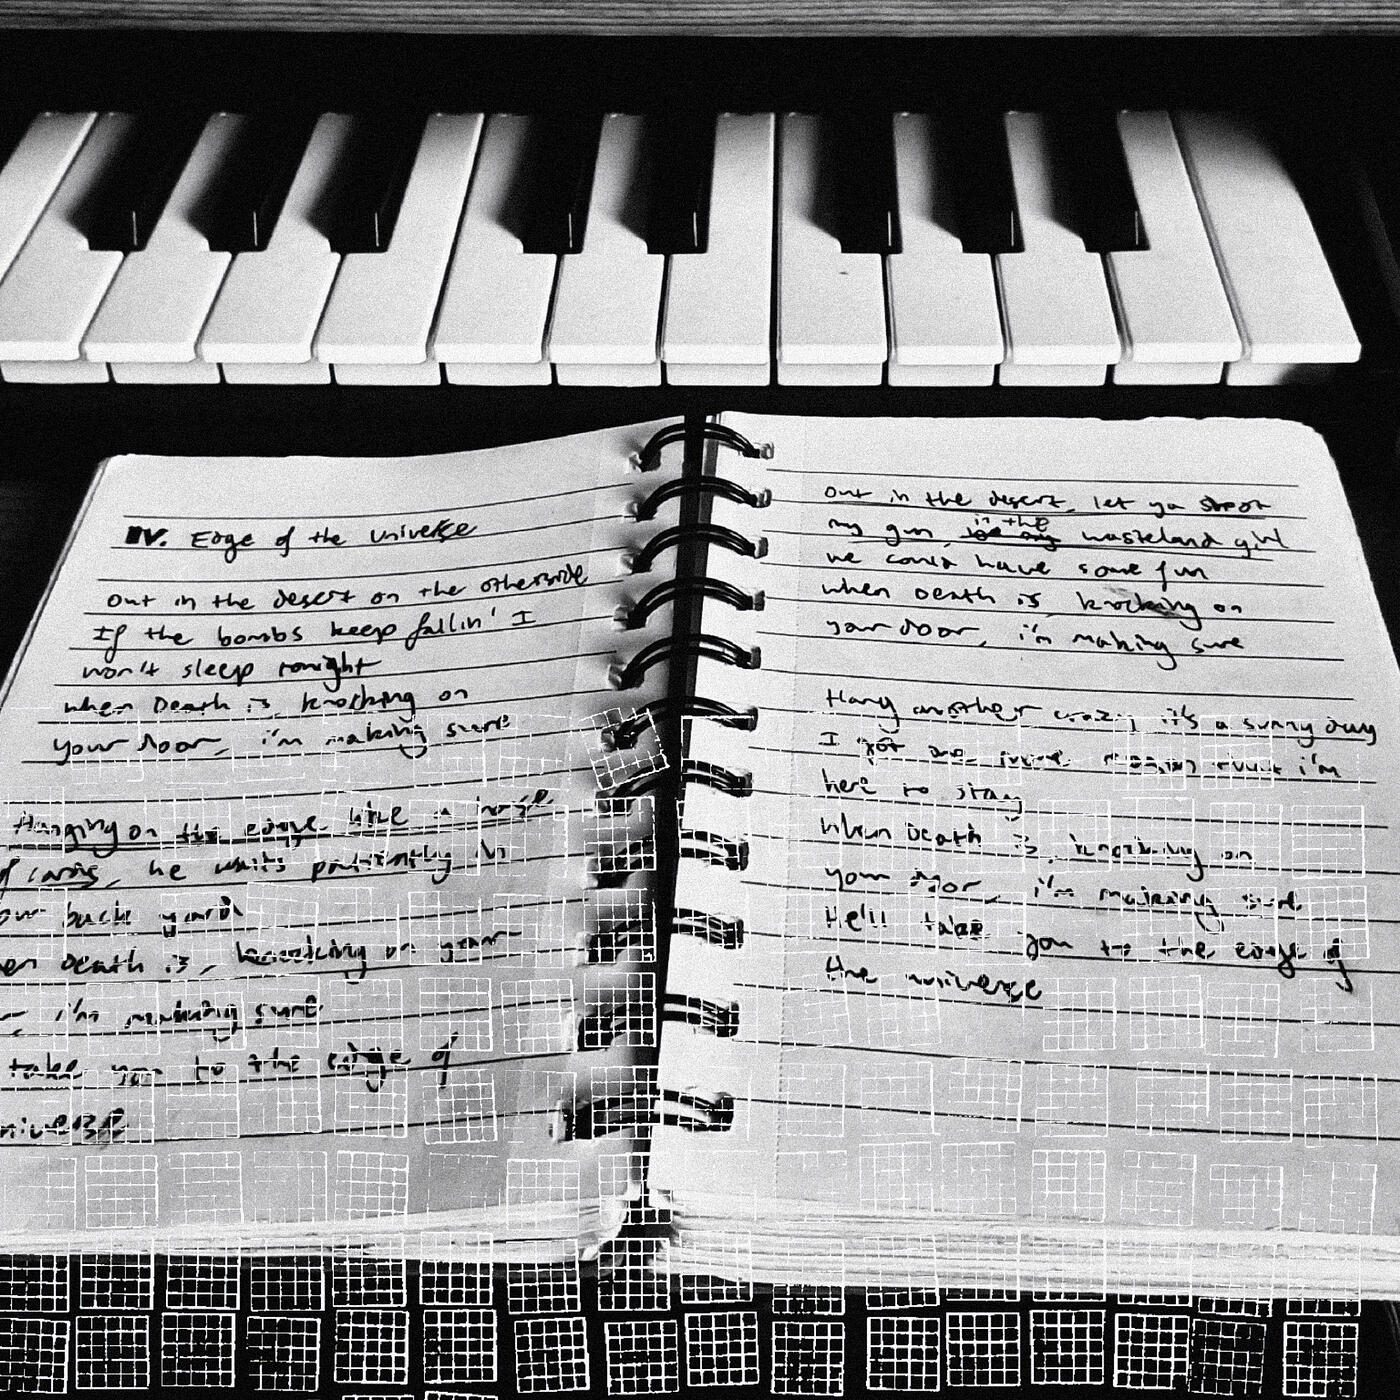 IV. Edge of the Universe
out in the desert on the otherside
If the bombs keep fallin' I
won't sleep tonight
when Death is, knocking on
your door, i'm making sure
Hanging on the edge like a
of cards, he waits patiently in
our back yard
en Death is, knocking on your
i'm making sure
take you to the edge of
niverse
out in the desert, let ya shoot
my gun, in the wasteland girl
we could have some fun
when Death is, knocking on
your door, i'm making sure
Hang another crazy, it's a sunny day
I got one more reason that i'm
here to stay
when Death is, knocking on
your door, i'm making sure
He'll take you to the edge of
the universe